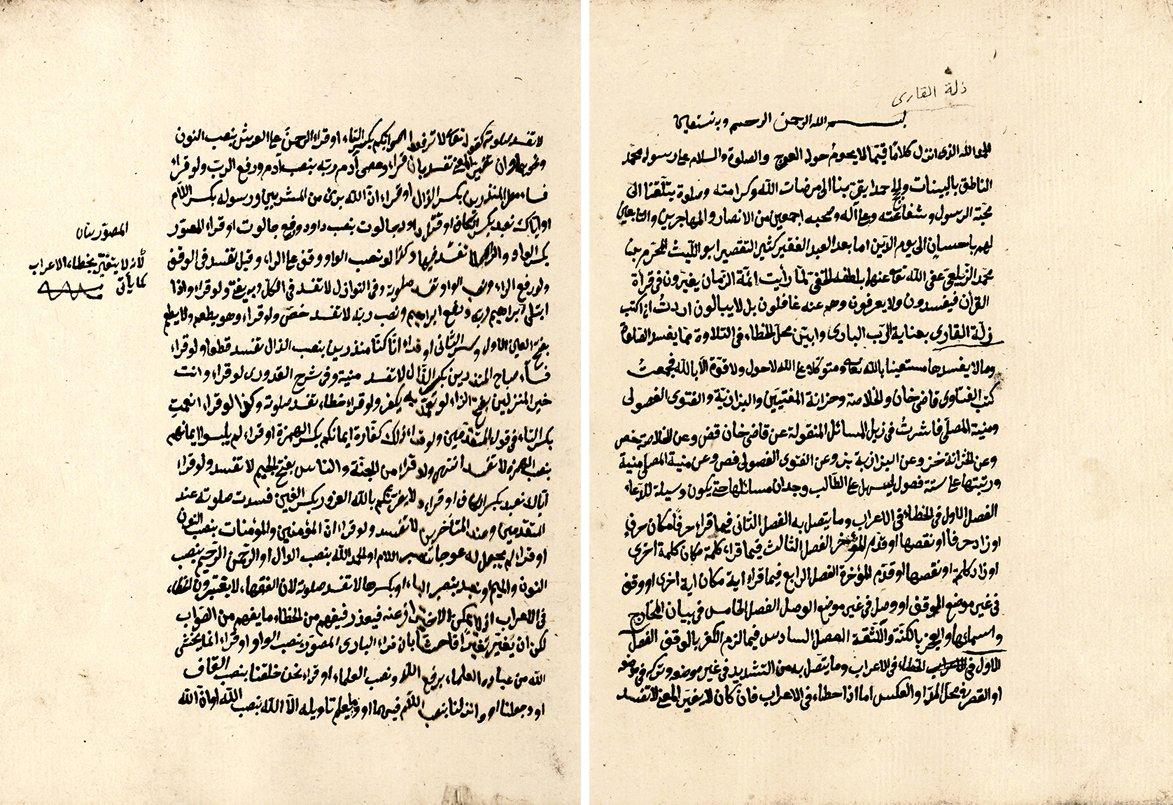 ذلة القارى
بسم الله الرحمن الرحيم وبه نستعين
الحمد لله الذى انزل كلاما قيما لا يحوم حوله العوج والصلوة والسلام على رسوله محمد
الناطق بالبينات والحجج احد يقربنا الى مرضات الله وكرامته وصلوة يبلغنا الى
محبة الرسول وشفاعته وعلى آله وصحبه اجمعين من الانصار والمهاجرين والتابعين
لهم باحسان الى يوم الدين اما بعد العبد الفقير كثير التقصير ابو الليث المحرم بن
محمد الزيلعى عفى الله تعا عنهما بلطفه الخفى لما رأيت ائمة الزمان يغيرون فى قرأة
القرآن فيفسدون ولا يعرفون وهم عنه غافلون بل لا يبالون اردت ان اكتب
زلة القارى بعناية الرب البارى وابين محل الخطاء فى التلاوة مما يفسد الصلوة
وما لا يفسدها مستعينا بالله تعا ومتوكلا على الله لا حول ولا قوة الا بالله فجمعت
كتب الفتاوى قاضى خان والخلاصة وخزانة المفتيين والبزازية والفتوى الفصولى
ومنية المصلى فاشرت فى زيل المسائل المنقولة عن قاضى خان قض وعن الخلاصة بخص
وعن الخزانة خز وعن البزازية بز وعن الفتوى الفصولى فص وعن منية المصلى منية
ورتبتها على ستة فصول ليسهل على الطالب وجدان مسائلها حتى يكون وسيلة للدعاء
الفصل الاول فى الخطاء فى الاعراب وما يتصل به الفصل الثانى فيما قراء حرفا مكان حرف
او زاد حرفا او نقصها او قدم المؤخر الفصل الثالث فيما قراء كلمة مكان كلمة اخرى
او زاد كلمة او نقصها او قدم المؤخرة الفصل الرابع فيما قراء اية مكان اية اخرى او وقف
فى غير موضع الوقف او وصل فى غير موضع الوصل الفصل الخامس فى بيان المخارج
واسمائها والعجز بالكنة واللثغة الفصل السادس فيما لزم الكفر بالوقف الفصل
الاول فى الخطاء فى الاعراب وما يتصل به من التشديد فى غير موضعه وتركه فى موضعه
او القصر فى محل المد او العكس اما اذا اخطاء فى الاعراب فان كان لم يغير المعنى لا تفسد
لا تفسد صلوته كقوله تعا لا ترفعوا اصواتكم بكسر التاء او قراء الرحمن على العرش بنصب النون
ونحوها وان غير المعنى تفسد بان قراء وعصى آدم ربه بنصب آدم ورفع الرب ولو قراء
فساء صباح المنذرين بكسر الذال او قراء ان الله برئ من المشركين ورسوله بكسر اللام
او اياك نعبد بكسر الكاف او قتل داود جالوت بنصب داود ورفع جالوت او قراء المصور
بكسر الواو
ولو رفع الراء ونصب الواو تفسد صلوته وفى النوازل لا تفسد فى الكل وبه يفتى ولو قراء واذا
ابتلى ابراهيم ربه ورفع ابراهيم ونصب ربه لا تفسد خص ولو قراء وهو يطعم ولا يطعم
بفتح العين الاول وكسر الثانى او قراء انا كنا منذرين بنصب الذال تفسد قطعا ولو قراء
فساء صباح المنذرين بكسر الذال لا تفسد منية وفى شرح القدورى لو قراء وانت
خير المنزلين بفتح الزاء لو تعمد به يكفر ولو قراء خطاء تفسد صلوته وكذا لو قراء انعمت
بكسر التاء فى قول المتقدمين ولو قراء ذلك كفارة ايمانكم بكسر الهمزة او قراء لم يلبسوا ايمانهم
بنصب الهمزة لا تفسد انتهى ولو قراء من الجنة والناس بفتح الجيم لا تفسد ولو قراء
ايانا نعبد بكسر الكاف او قراء ولا يغرنكم بالله الغرور بكسر الغين فسدت صلوته عند
المتقدمين وعند المتأخرين لا تفسد ولو قراء ان المؤمنين والمؤمنات بنصب النون
او قراء لم يجعل له عوجا بكسر اللام او الحمد لله بنصب الدال او الرحمن الرحيم بنصب
النون والميم او نعبد بنصر الباء او بكسرها لا تفسد صلوته لان الفقهاء لا يعتبرون الخطاء
فى الاعراب اذ لا يمكن الاحتراز عنه فيعذر فيفهم من الخطاء ما يفهم من الصواب
لكن ان يغير تغييرا فاحشا بان قراء البارى المصور بنصب الواو او قراء انما يخشى
الله من عباده العلماء برفع الله ونصب العلماء او قراء نحن خلقنا بنصب القاف
او جعلنا او انزلنا بنصب اللام فيهما او وما يعلم تاويله الا الله بنصب الله او ان الله
لانه لا يعتبر بخطاء الاعراب
كما يأتى